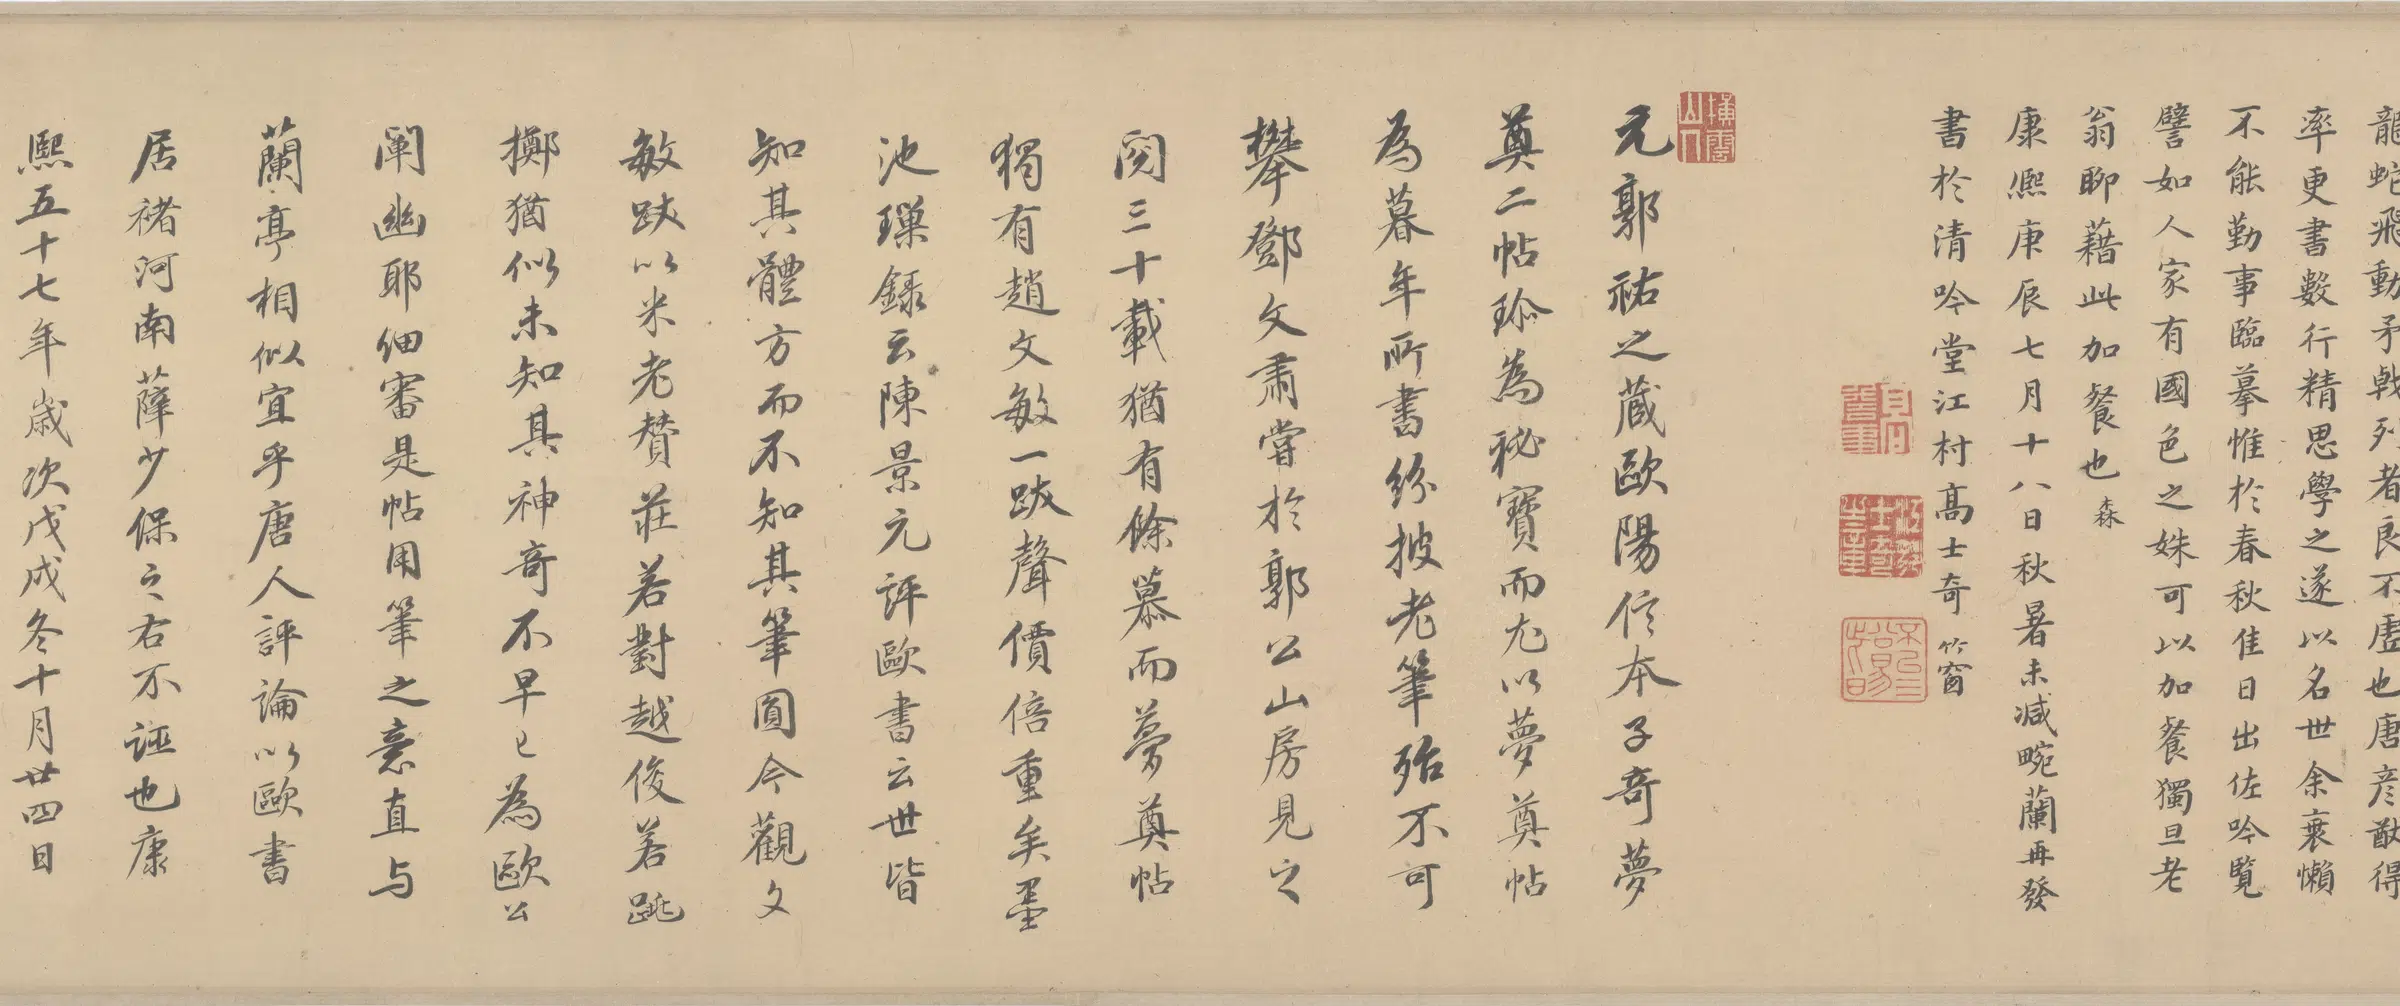 龍蛇飛動矛戟列者良不虛也唐彥猷得
率更書數行精思學之遂以名世余衰懶
不能勤事臨摹惟於春秋佳日出佐吟覽
譬如人家有國色之姝可以加餐獨旦老
翁聊藉此加餐也森
康熙庚辰七月十八日秋暑未減畹蘭再發
書於清吟堂江村高士奇
竹窗
橫雲山人
元郭祐之蔵歐陽信本子奇夢
奠二帖珎為秘寶而尤以夢奠帖
為暮年所書紛披老筆殆不可
攀鄧文肅嘗於郭公山房見之
閱三十載猶有餘慕而夢奠帖
獨有趙文敏一跋聲價倍重矣墨
池璅錄云陳景元評歐書云世皆
知其體方而不知其筆圓今觀文
敏跋以米老贊莊若對越俊若跳
擲猶似未知其神奇不早已為歐公
闡幽耶細審是帖用筆之意直与
蘭亭相似宜乎唐人評論以歐書
居褚河南薛少保之右不誣也康
熙五十七年歲次戊戌冬十月廿四日